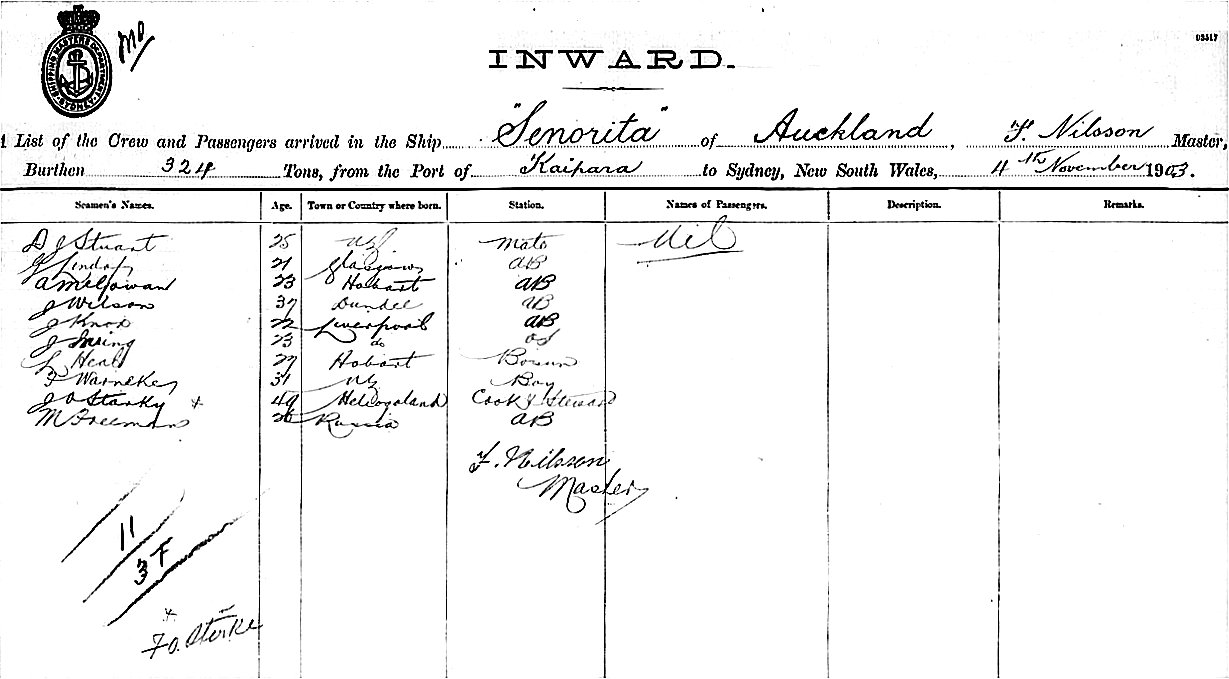 SHIPPING MASTERS DEPARTMENT SYDNEY
MO
03517
INWARD.
A List of the Crew and Passengers arrived in the Ship "Senorita" of Auckland, F. Nilsson Master,
Burthen 324 Tons, from the Port of Kaipara to Sydney, New South Wales, 4th November 1903.
Seamen's Names. Age. Town or Country where born. Station. Names of Passengers. Description. Remarks.
D J Stuart 25 NZ Mate Nil
J Lindop 21 Glasgow AB
A McGowan 23 Hobart AB
J Wilson 37 Dundee AB
J Knox 22 Liverpool AB
J Irving 23 do OS
L Heald 27 Hobart Bosun
F Warnekey 31 NZ Boy
J O Starky x 49 Heliogoland Cook & Steward
M Freeman 26 Russia AB
F. Nilsson
Master
11
3 F
x
F O. Sterke